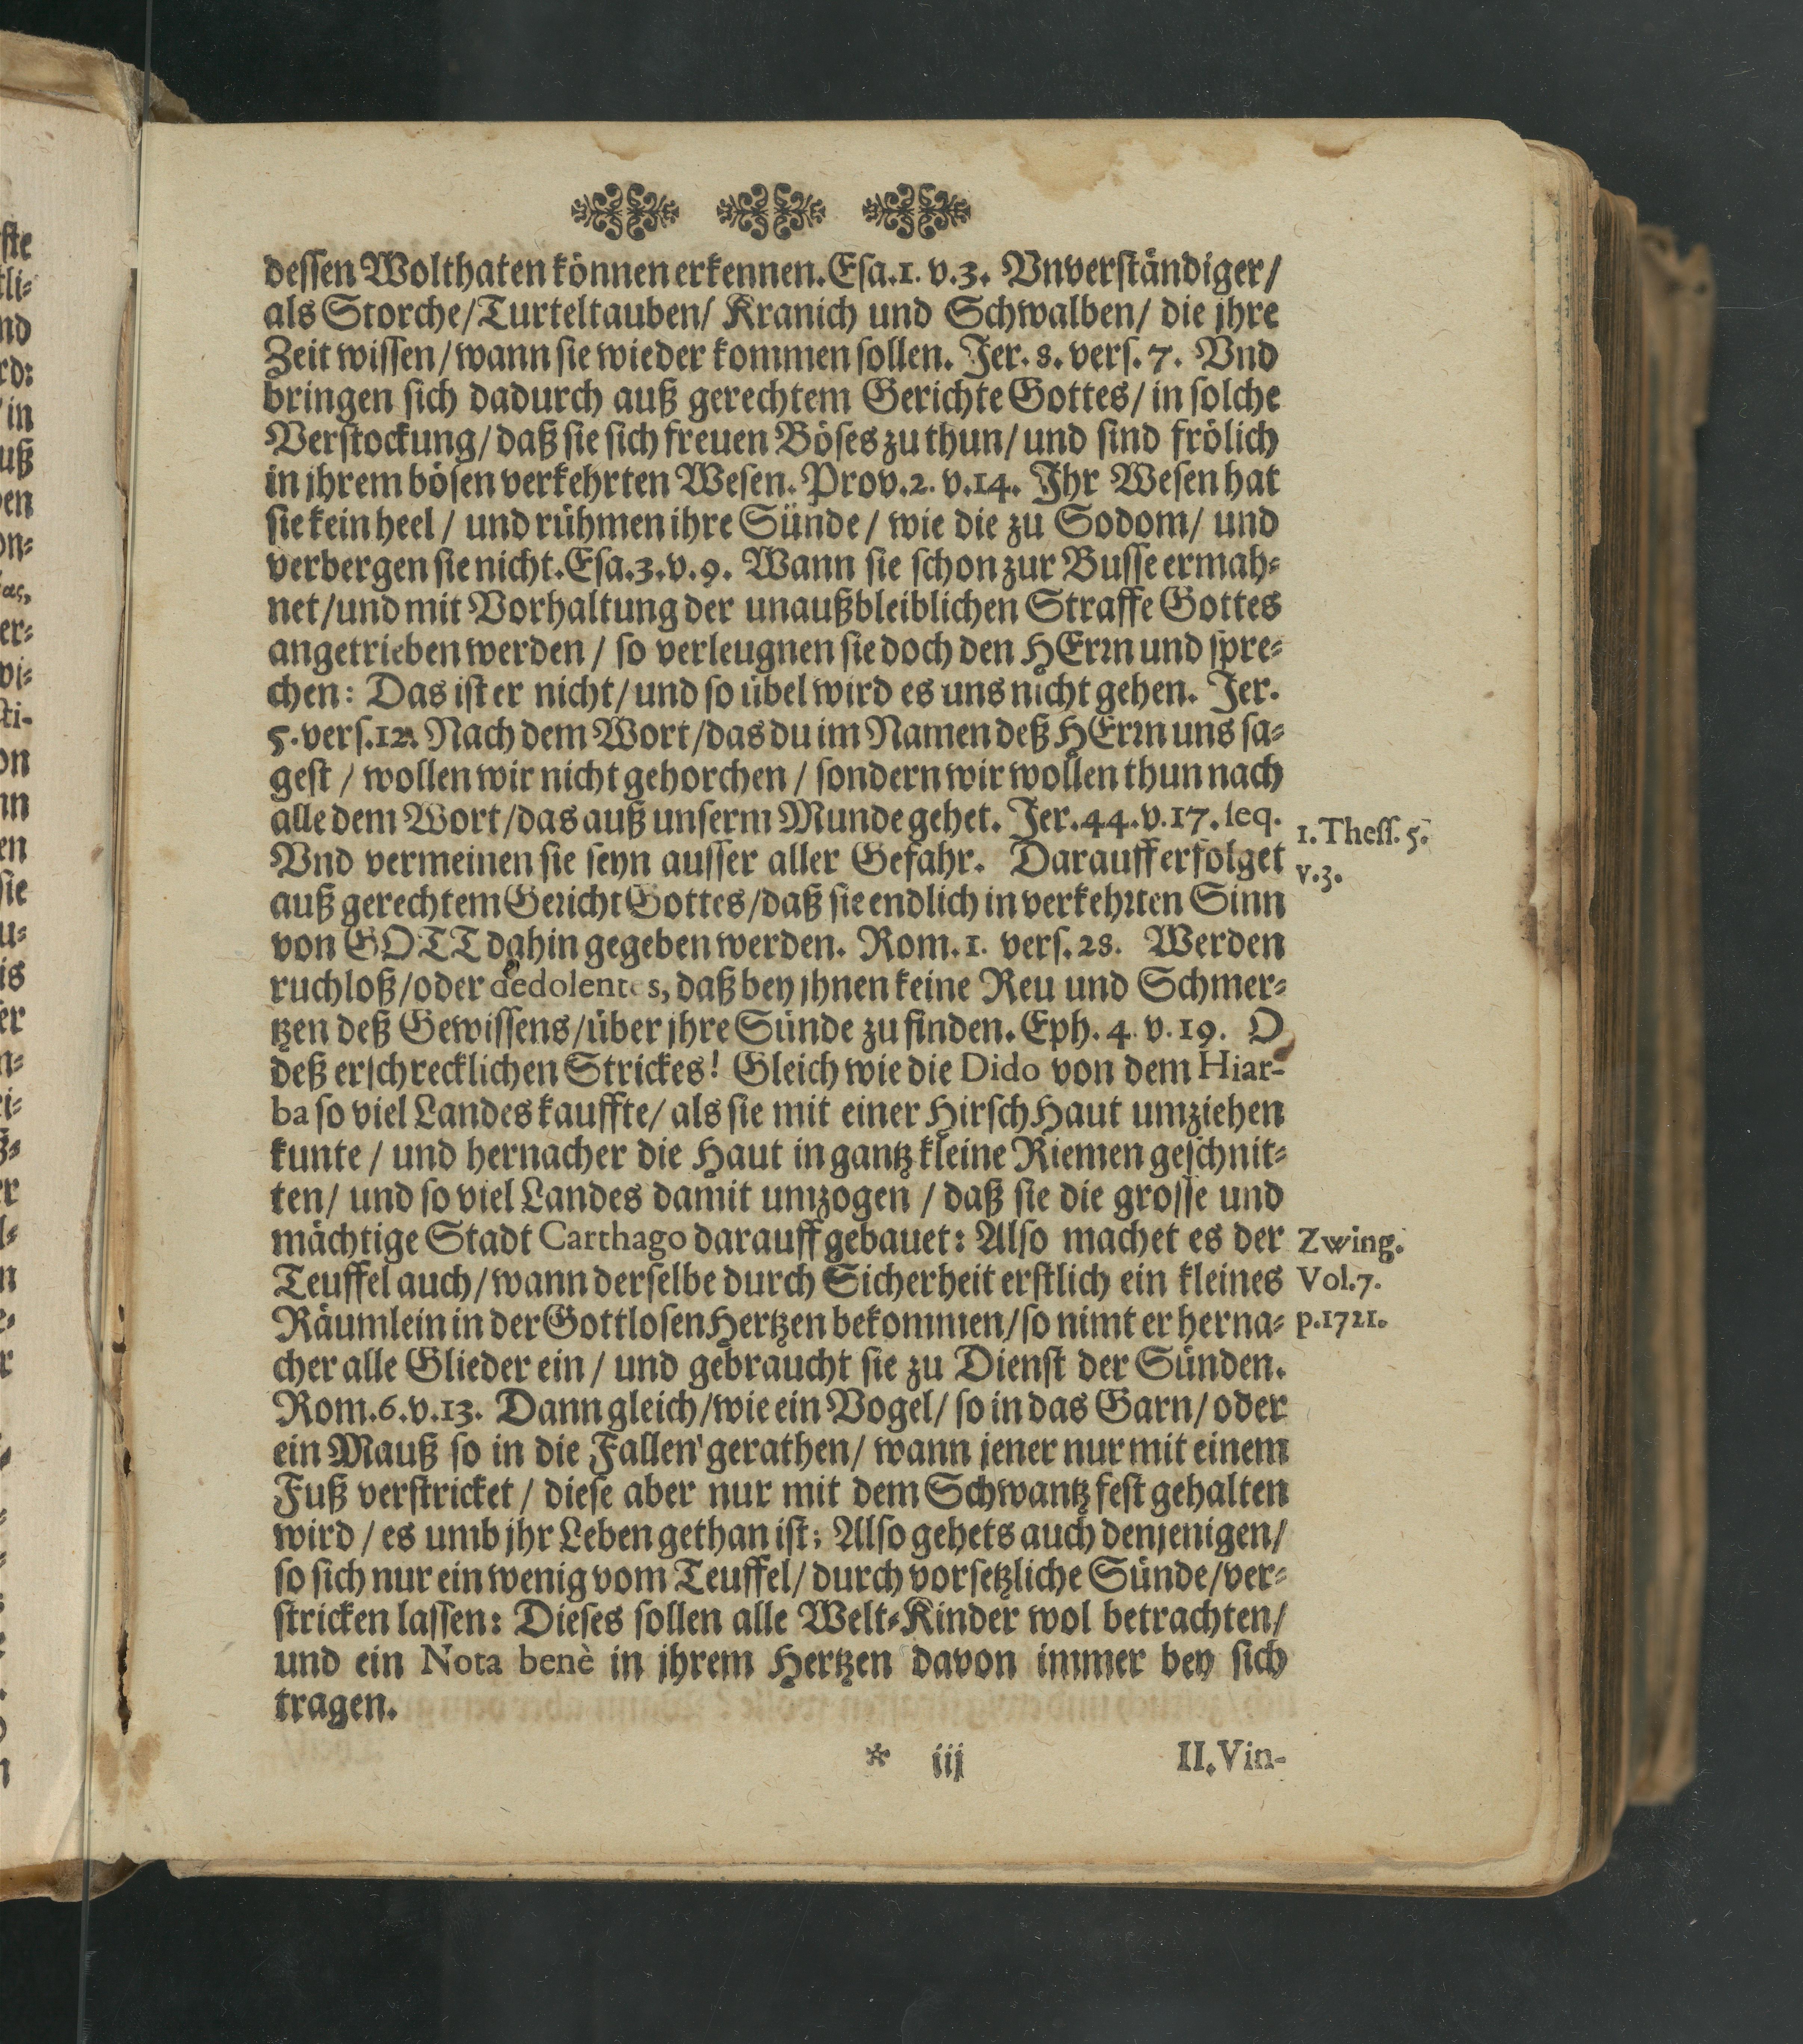 dessen Wolthaten können erkennen. Esa. 1. v. 3. Vnverständiger/
als Storche/ Turteltauben/ Kranich und Schwalben/ die jhre
Zeit wissen/ wann sie wieder kommen sollen. Jer. 8. vers. 7. Vnd
bringen sich dadurch auß gerechtem Gerichte Gottes/ in solche
Verstockung/ daß sie sich freuen Böses zu thun/ und sind frölich
in jhrem bösen verkehrten Wesen. Prov. 2. v. 14. Ihr Wesen hat
sie kein heel / und rühmen ihre Sünde / wie die zu Sodom/ und
verbergen sie nicht. Esa. 3. v. 9. Wann sie schon zur Busse ermah-
net/ und mit Vorhaltung der unaußbleiblichen Straffe Gottes
angetrieben werden / so verleugnen sie doch den HErrn und spre-
chen: Das ist er nicht/ und so übel wird es uns nicht gehen. Jer.
5. vers. 12. Nach dem Wort/ das du im Namen deß HErrn uns sa-
gest / wollen wir nicht gehorchen / sondern wir wollen thun nach
alle dem Wort/ das auß unserm Munde gehet. Jer. 44. v. 17. seq.
Vnd vermeinen sie seyn ausser aller Gefahr. Darauff erfolget
1. Thess. 5.
v. 3.
auß gerechtem Gericht Gottes/ daß sie endlich in verkehrten Sinn
von GOTT dahin gegeben werden. Rom. 1. vers. 28. Werden
ruchloß/ oder dedolentes, daß bey jhnen keine Reu und Schmer-
tzen deß Gewissens/ über jhre Sünde zu finden. Eph. 4. v. 19. O
deß erschrecklichen Strickes! Gleich wie die Dido von dem Hiar-
ba so viel Landes kauffte/ als sie mit einer Hirsch Haut umziehen
kunte / und hernacher die Haut in gantz kleine Riemen geschnit-
ten/ und so viel Landes damit umzogen / daß sie die grosse und
mächtige Stadt Carthago darauff gebauet: Also machet es der
Teuffel auch/ wann derselbe durch Sicherheit erstlich ein kleines
Räumlein in der Gottlosen Hertzen bekommen/ so nimt er herna-
Zwing.
Vol. 7.
p. 1721.
cher alle Glieder ein / und gebraucht sie zu Dienst der Sünden.
Rom. 6. v. 13. Dann gleich/ wie ein Vogel/ so in das Garn/ oder
ein Mauß so in die Fallen gerathen/ wann jener nur mit einem
Fuß verstricket / diese aber nur mit dem Schwantz fest gehalten
wird / es umb jhr Leben gethan ist: Also gehets auch denjenigen/
so sich nur ein wenig vom Teuffel/ durch vorsetzliche Sünde/ ver-
stricken lassen: Dieses sollen alle Welt-Kinder wol betrachten/
und ein Nota benè in jhrem Hertzen davon immer bey sich
tragen.
* iij II. Vin-